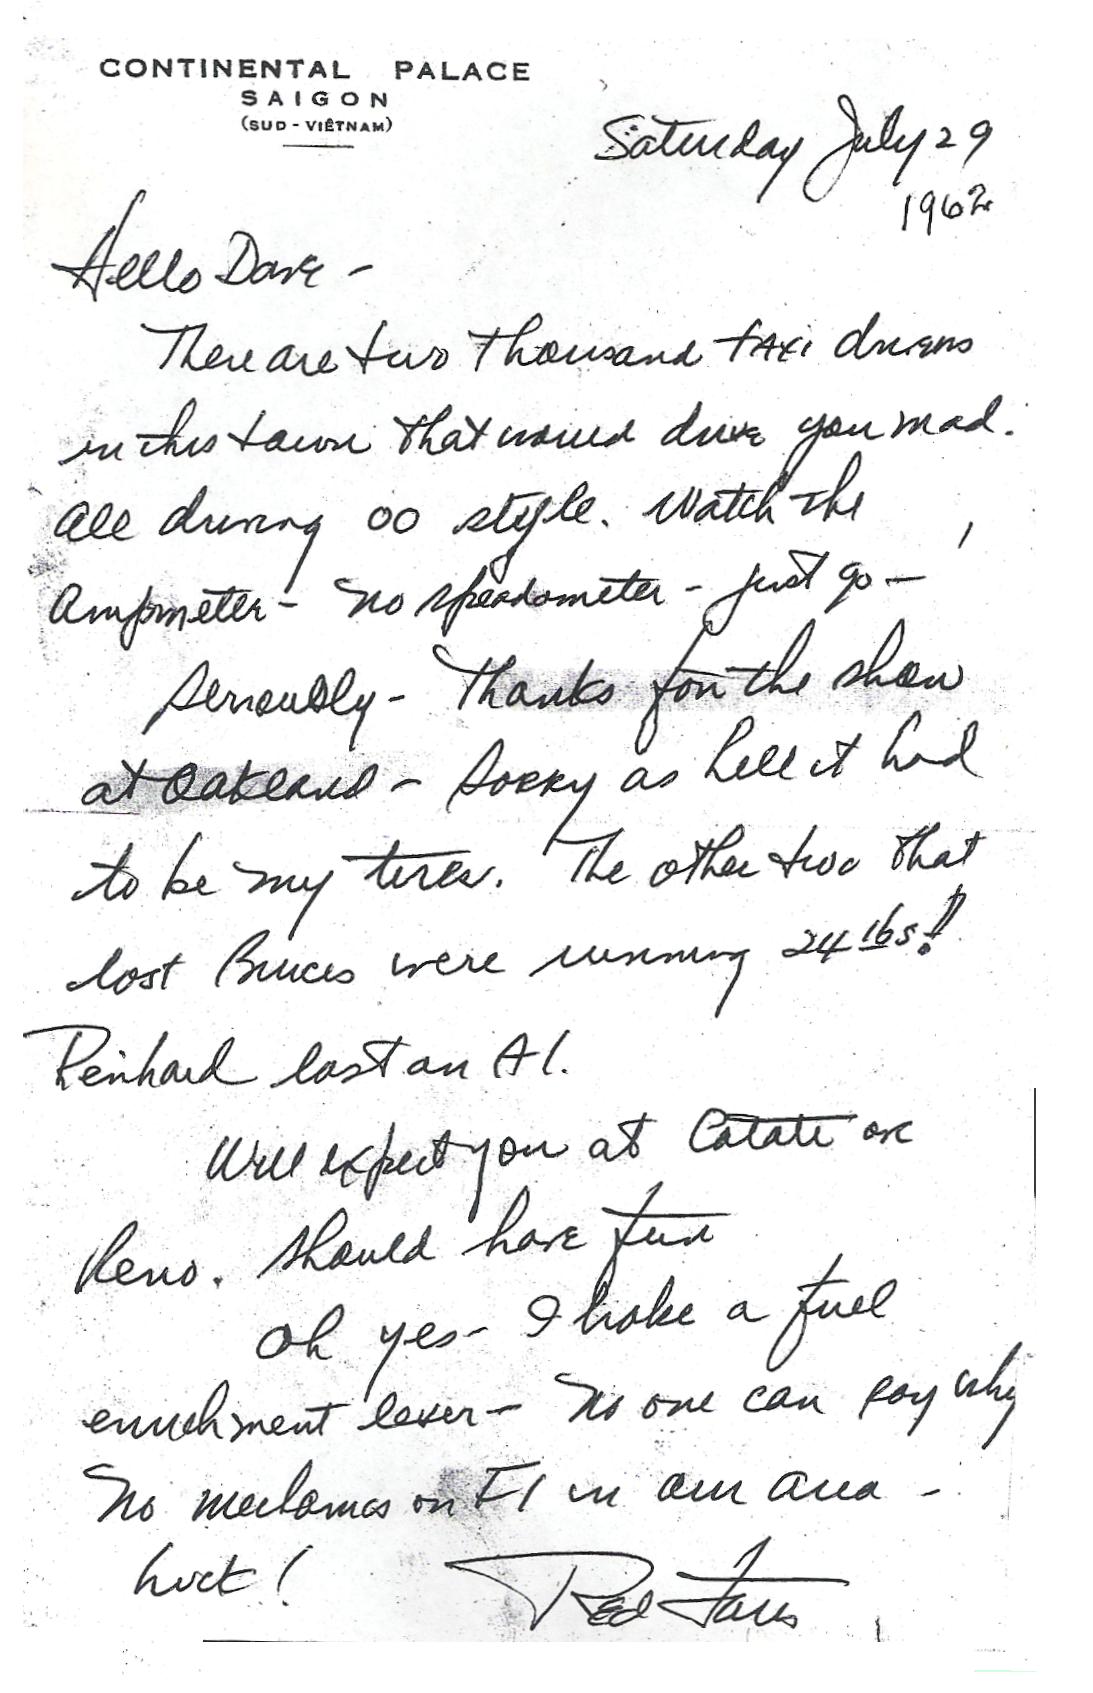 CONTINENTAL PALACE
SAIGON
(SUD-VIÊTNAM)
Saturday July 29
1962
Hello Dave -
There are two thousand taxi drivers
in this town that would drive you mad.
All driving OO style. Watch the
Ampmeter - No speedometer - just go -
Seriously - Thanks for the show
at Oakland - Sorry as hell it had
to be my tires. The other two that
lost Bruces were running 24 lbs!
Reinhard lost an A1.
Will expect you at Cotati or
Reno. Should have fun
Oh yes - I broke a fuel
enrichment lever - No one can say why
No mechanics on F1 in our area -
Luck!
Red Faris